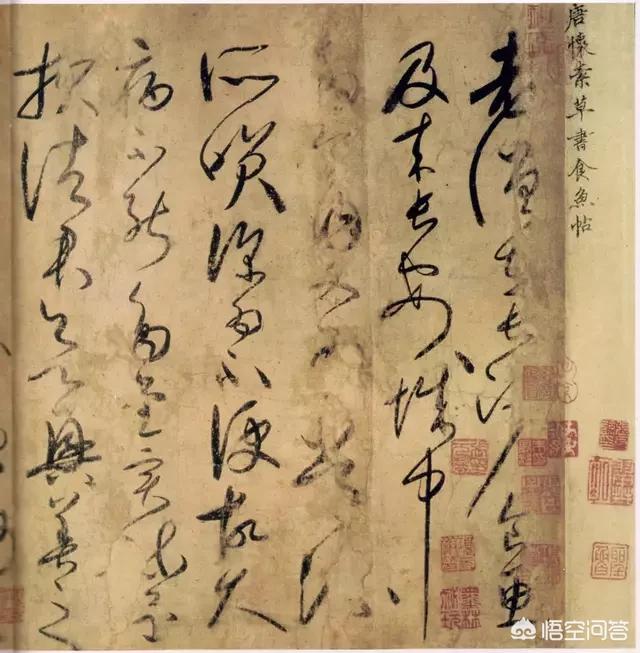 唐懷素草書食魚帖
老僧在長沙食魚
及來長安城中
多食肉又為常流
所笑深為不便故久
病不能多書實疏還
報諸君欲興善之
悟空问答